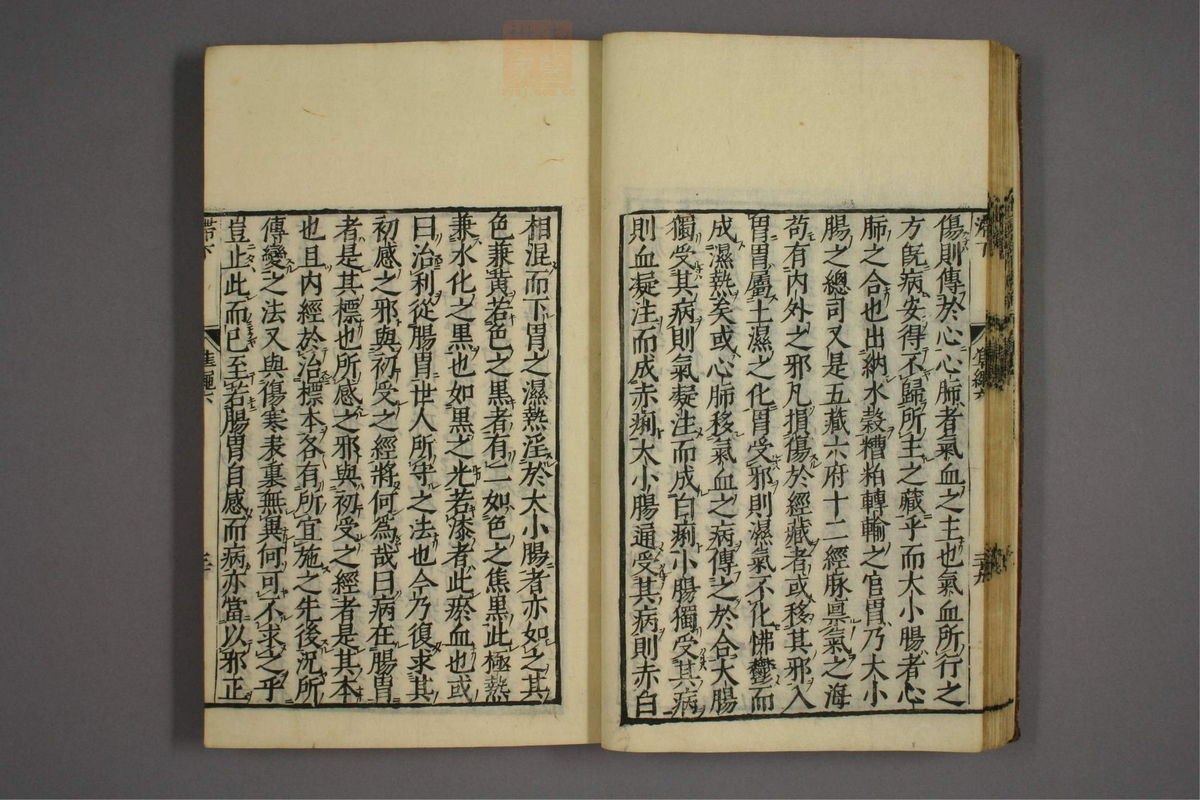 傷則傳於心心肺者氣血之主也氣血所行之
方既病安得不歸所主之藏乎而大小腸者心
肺之合也出納水穀糟粕轉輸之官胃乃大小
腸之總司又是五藏六府十二經脉禀氣之海
苟有内外之邪凡損傷於經藏者或移其邪入
胃胃屬土濕之化胃受邪則濕氣不化怫鬱而
成濕熱矣或心肺移氣血之病傳之於合大腸
獨受其病則氣凝注而成白痢小腸獨受其病
則血凝注而成赤痢大小腸通受其病則赤白
相混而下胃之濕熱淫於大小腸者亦如之其
色兼黄若色之黒者有二如色之焦黒此極熱
兼水化之黒也如黒之光若漆者此瘀血也或
曰治利從腸胃世人所守之法也今乃復求其
初感之邪與初受之經將何為哉曰病在腸胃
者是其標也所感之邪與初受之經者是其本
也且内經於治標本各有所宜施之先後況所
傳變之法又與傷寒表裏無異何可不求之乎
豈止此而已至若腸胃自感而病亦當以邪正